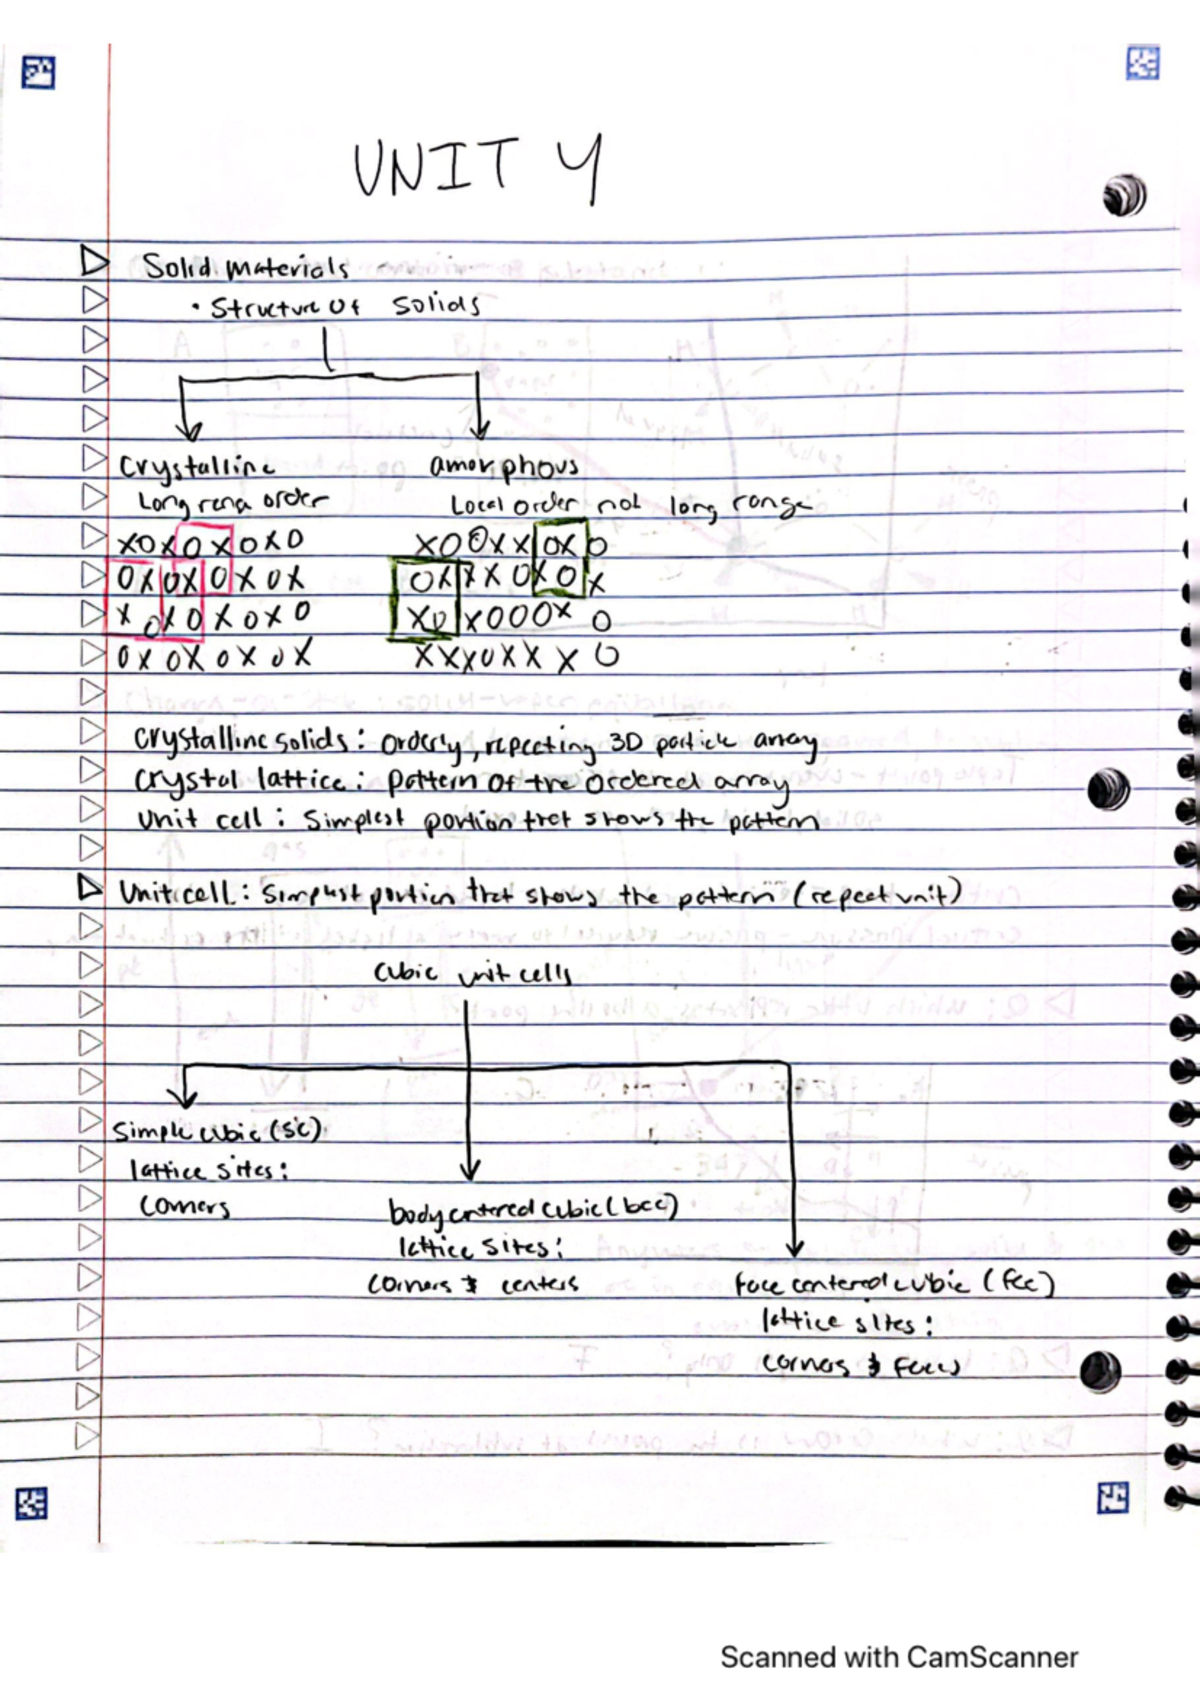 UNIT 4
Solid Materials
• Structure of Solids
Crystalline amorphous
Long rang order Local order not long range
XOXOXOXO XOOXXOXO
OXOXOXOX OXXXOXOX
XOXOXOXO XOXOOOXO
OXOXOXOX XXXOXXXO
Crystalline solids: Orderly, repeating 3D particle array
Crystal lattice: pattern of the ordered array
Unit cell: Simplest portion that shows the pattern
Unit cell: Simplest portion that shows the pattern (repeat unit)
Cubic unit cells
Simple cubic (sc)
lattice sites:
corners
body centered cubic (bcc)
lattice sites:
corners & centers
face centered cubic (fcc)
lattice sites:
corners & faces
Scanned with CamScanner